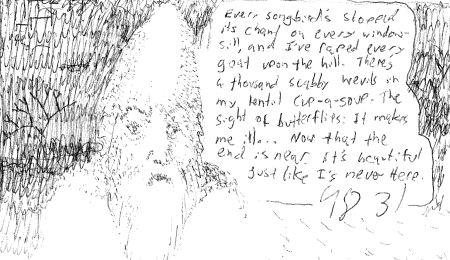 Every songbird's stopped
its chant on every window-
sill and I've raped every
goat upon the hill. There's
a thousand scabby weevils in
my lentil cup-a-soup. The
sight of butterflies: It makes
me ill... Now that the
end is near it's beautiful
just like I's never here.